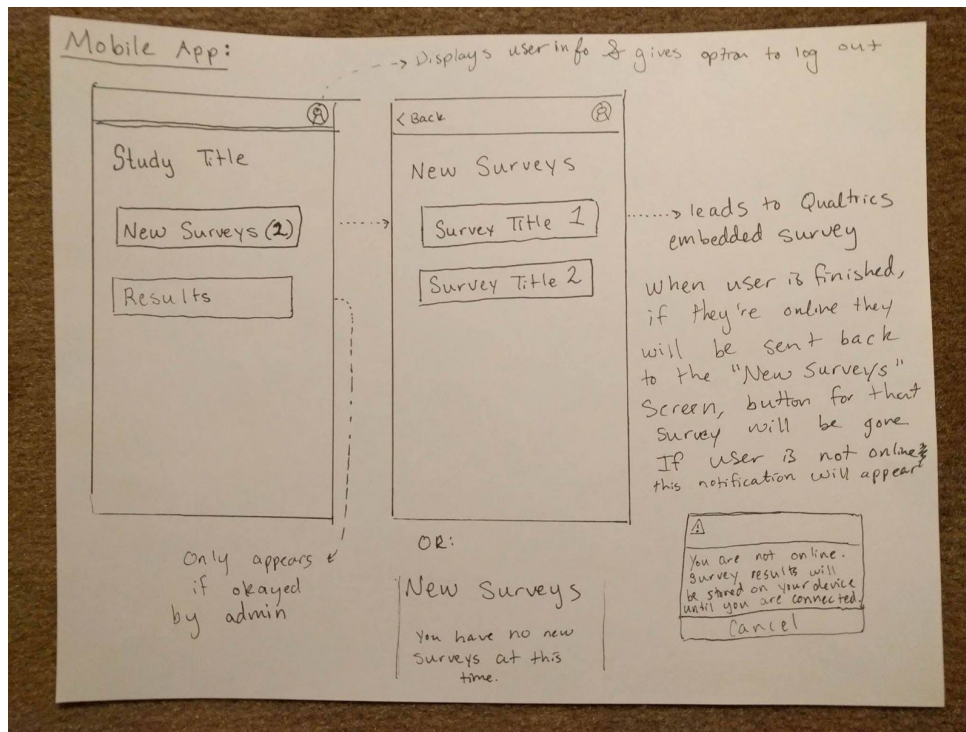 Mobile App:
Displays user info & gives option to log out
Study Title
New Surveys (2)
Results
Only appears
if okayed
by admin
< Back
New Surveys
Survey Title 1
Survey Title 2
OR:
New Surveys
You have no new
surveys at this
time.
leads to Qualtrics
embedded survey
when user is finished,
if they're online they
will be sent back
to the "New Surveys"
Screen, button for that
survey will be gone
If user is not online
this notification will appear
You are not online.
Survey results will
be stored on your device
until you are connected.
Cancel